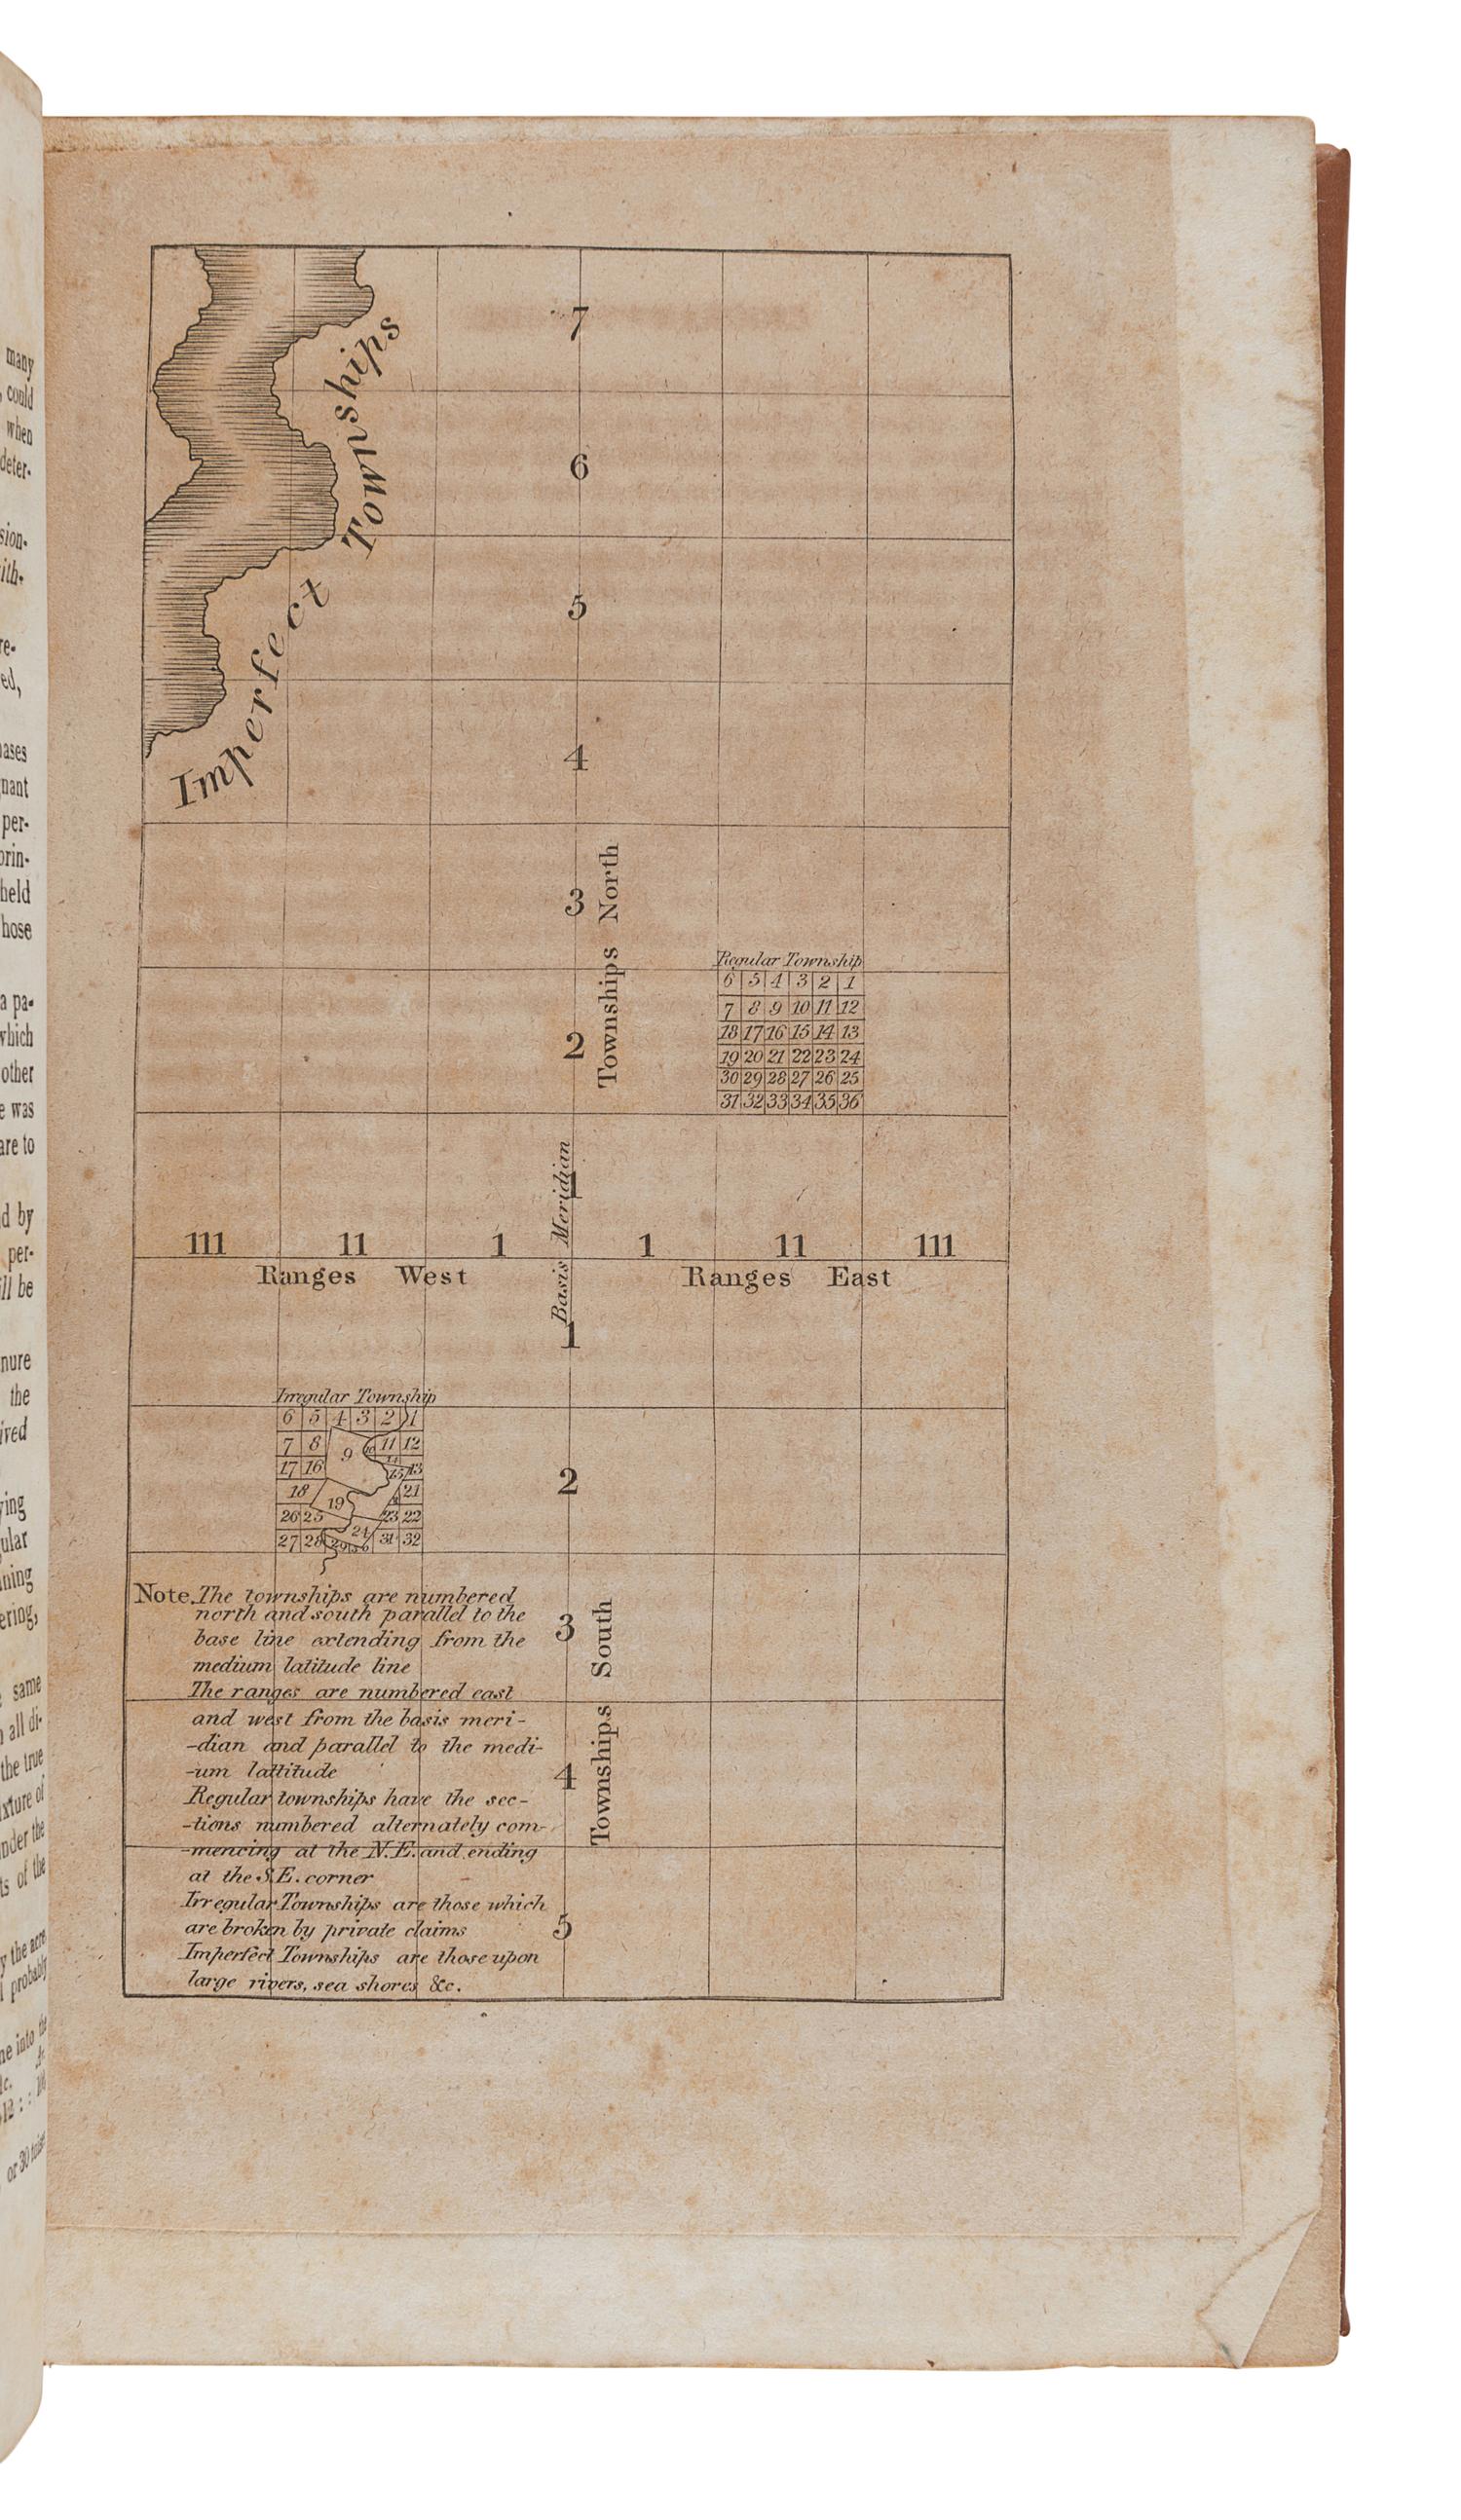 many
could
when
deter-
sion-
ith-
re-
ed,
ases
nant
per-
prin-
held
hose
a pa-
which
other
e was
are to
d by
per-
ill be
nure
the
ived
ying
ular
ning
ering,
same
all di-
the true
ixture of
nder the
ts of the
y the acre
probably
ne into the
&c.
or 30 toises
7
6
5
4
3
2
1
Imperfect Townships
Townships North
Regular Township
6 5 4 3 2 1
7 8 9 10 11 12
18 17 16 15 14 13
19 20 21 22 23 24
30 29 28 27 26 25
31 32 33 34 35 36
Basis Meridian
111 11 1 1 11 111
Ranges West Ranges East
1
Irregular Township
6 5 4 3 2 1
7 8 9 10 11 12
17 16 14 15 13
18 19 21
26 25 23 22
27 28 29 24 31 32
2
3
4
5
Townships South
Note. The townships are numbered
north and south parallel to the
base line extending from the
medium latitude line
The ranges are numbered east
and west from the basis meri-
-dian and parallel to the medi-
-um lattitude
Regular townships have the sec-
-tions numbered alternately com-
-mencing at the N.E. and ending
at the S.E. corner
Irregular Townships are those which
are broken by private claims
Imperfect Townships are those upon
large rivers, sea shores &c.